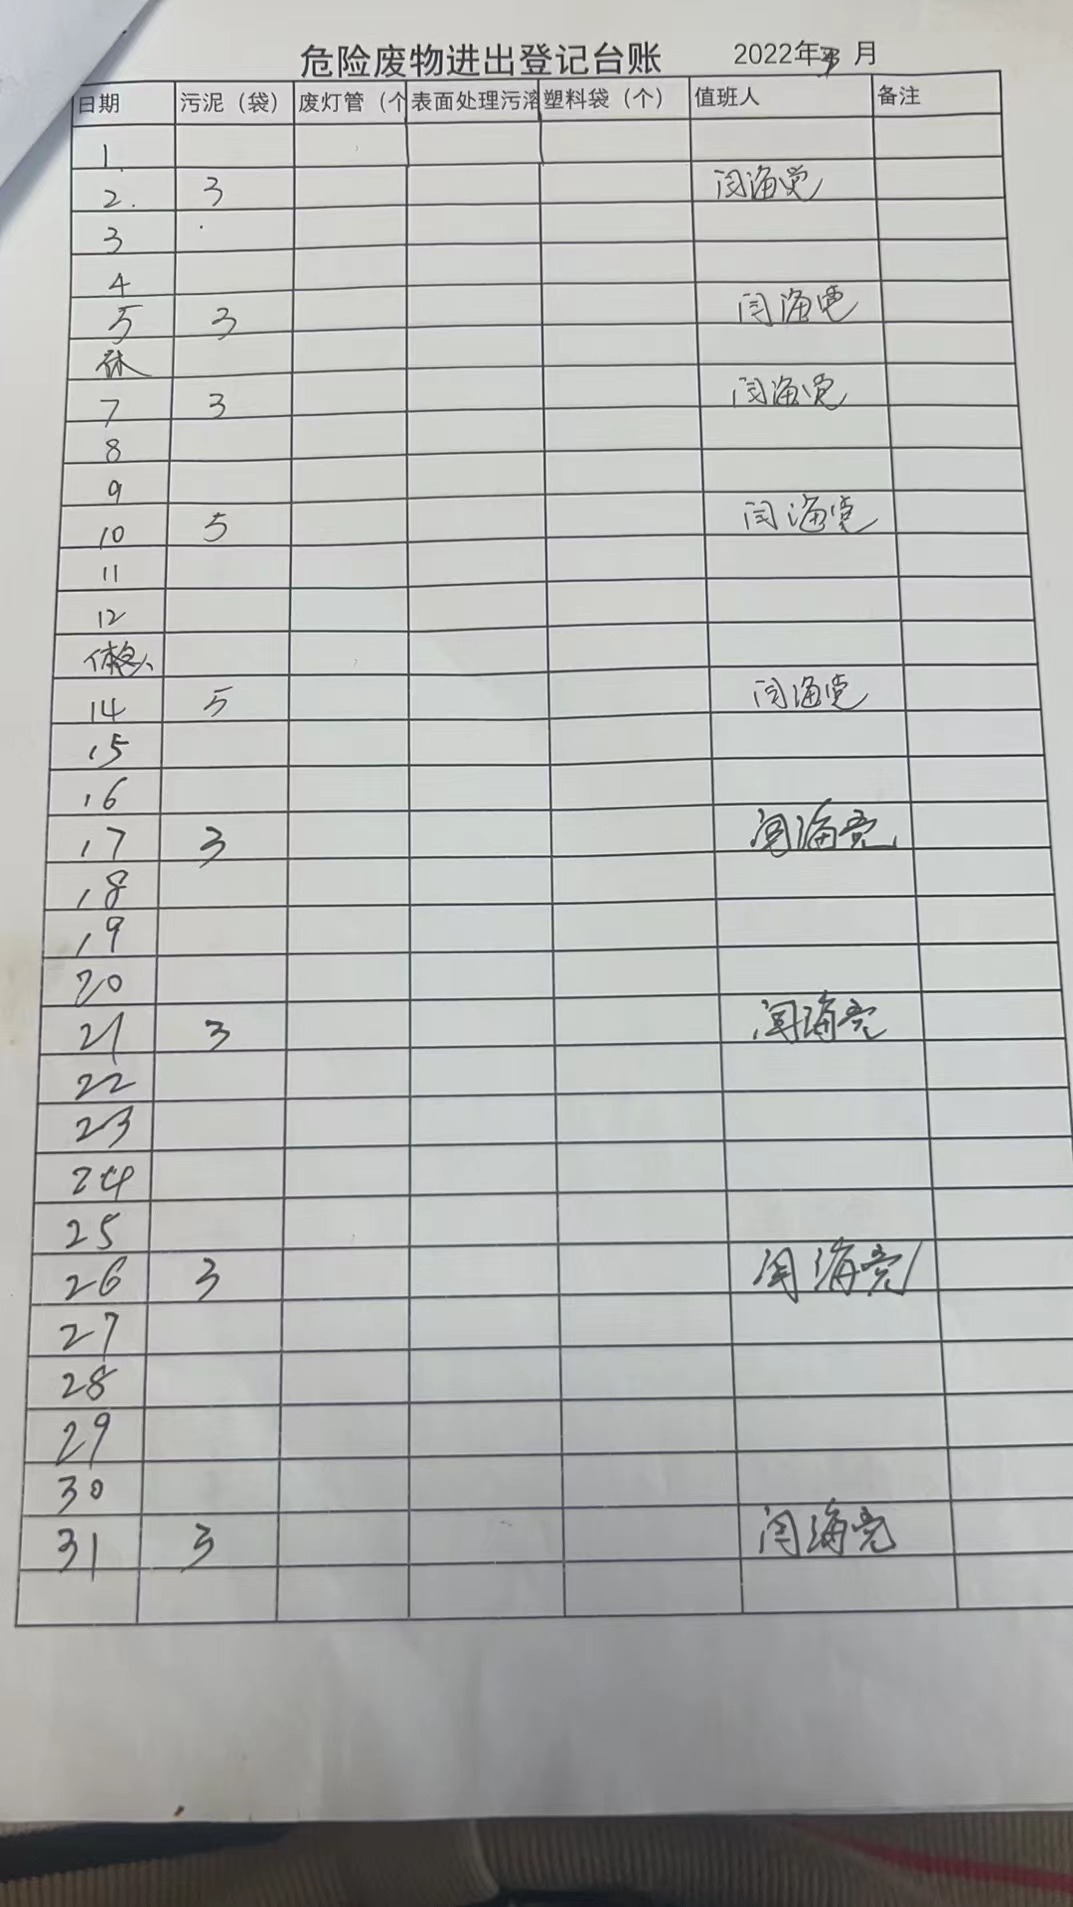 危险废物进出登记台账 2022年 月
日期 污泥（袋） 废灯管（个 表面处理污溶 塑料袋（个） 值班人 备注
1
2. 3 闫海亮
3
4
5 3 闫海亮
休
7 3 闫海亮
8
9
10 5 闫海亮
11
12
休息
14 5 闫海亮
15
16
17 3 闫海亮
18
19
20
21 3 闫海亮
22
23
24
25
26 3 闫海亮
27
28
29
30
31 3 闫海亮